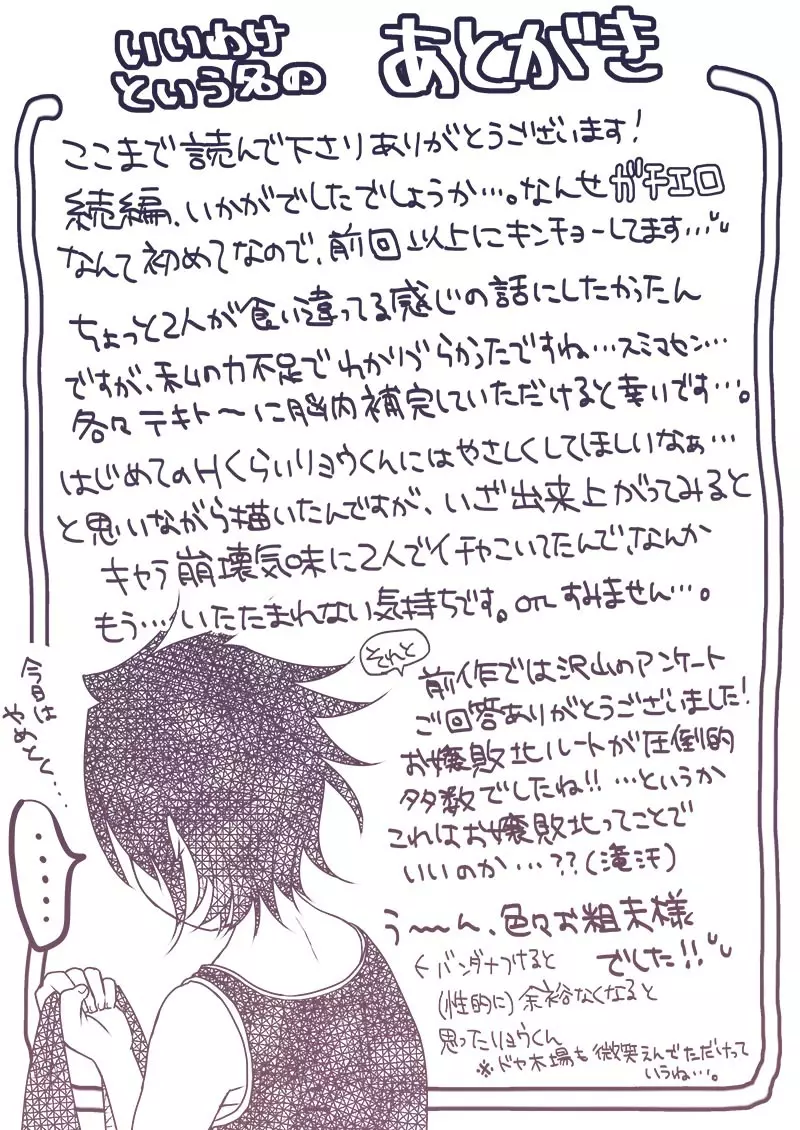 いいわけ
という名の
あとがき
ここまで読んで下さりありがとうございます!
続編、いかがでしたでしょうか…。なんせガチエロ
なんて初めてなので、前回以上にキンチョーしてます…
ちょっと2人が食い違ってる感じの話にしたかったん
ですが、私の力不足でわかりづらかったですね…スミマセン…
各々テキト〜に脳内補完していただけると幸いです…。
はじめてのHくらいリョウくんにはやさしくしてほしいなぁ…
と思いながら描いたんですが、いざ出来上がってみると
キャラ崩壊気味に2人でイチャこいてたんで、なんか
もう…いたたまれない気持ちです。orz すみません…。
それと
前作では沢山のアンケート
ご回答ありがとうございました!
お嬢敗北ルートが圧倒的
多数でしたね!! …というか
これはお嬢敗北ってことで
いいのか…??(滝汗)
う〜ん、色々お粗末様
でした!!
今日は
やめとく…
‥‥
←バンダナつけると
(性的に)余裕なくなると
思ったリョウくん
※ドヤ木場も微笑えんでただけって
いうね…。